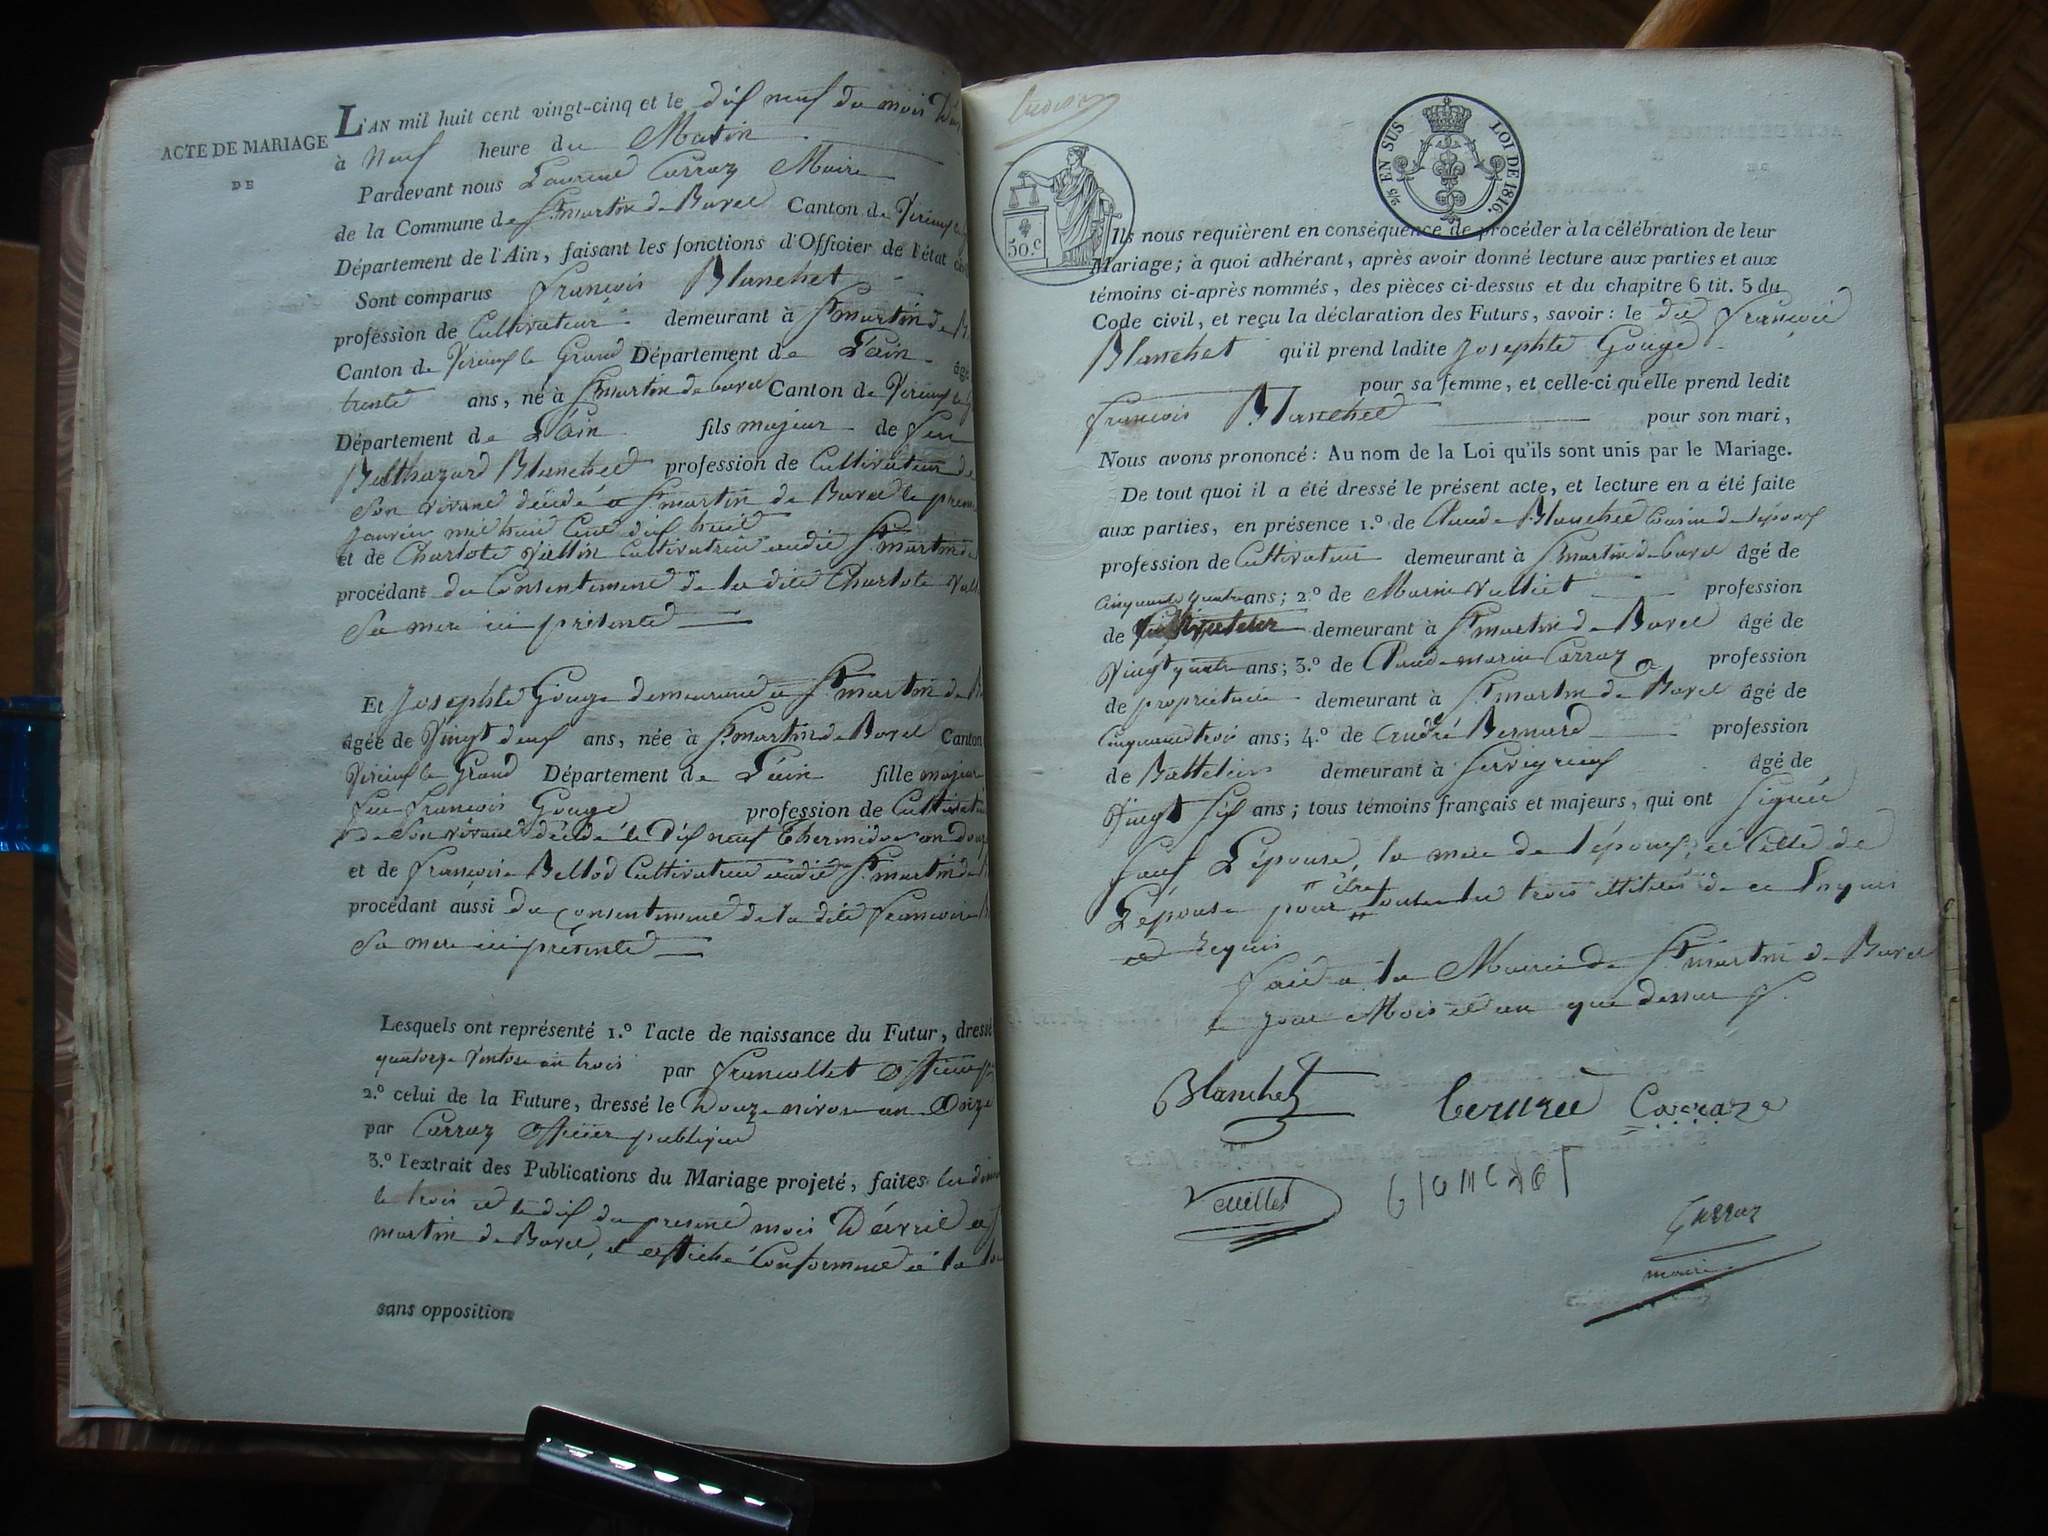 ACTE DE MARIAGE
DE
L'AN mil huit cent vingt-cinq et le dix neuf du mois
à Neuf heure du Matin
Pardevant nous Laurent Carraz Maire
de la Commune de St martin de Bavel Canton de Virieux
Département de l'Ain, faisant les fonctions d'Officier de l'état
Sont comparus francois Blanchet
profession de Cultivateur demeurant à St martin de
Canton de Virieux le Grand Département de L'ain âgé
trente ans, né à St martin de bavel Canton de Virieux
Département de L'ain fils majeur de feu
Balthazard Blanchet profession de Cultivateur de
Son vivant décédé a St martin de Bavel le
janvier mil huit Cent dix huit
et de Charlote Vallin Cultivatrice audit St martin de
procédant du Consentement de la dite Charlote
Sa mere ici présente
Et Josephte Gouge demeurant a St martin de
âgée de Vingt deux ans, née à St martin de Bavel Canton
Virieux le Grand Département de L'ain fille majeure
feu francois Gouge profession de
de Son vivant décédé le dix neuf thermidor an
et de françoise Bellod Cultivatrice audit St martin de
procédant aussi du Consentement de la dite francoise
Sa mere ici présente
Lesquels ont représenté 1.º l'acte de naissance du Futur, dressé
quatorze Ventose an trois par francollet officier
2.º celui de la Future, dressé le Douze nivose an Onze
par Carraz officier publique
3.º l'extrait des Publications du Mariage projeté, faites les
le trois et le dix du present mois D'avril a
martin de Bavel, et affiché Conformement a la
sans opposition
50.c
5/10 EN SUS LOI DE 1816.
Ils nous requièrent en conséquence de procéder à la célébration de leur
Mariage; à quoi adhérant, après avoir donné lecture aux parties et aux
témoins ci-après nommés, des pièces ci-dessus et du chapitre 6 tit. 5 du
Code civil, et reçu la déclaration des Futurs, savoir: le dit françois
Blanchet qu'il prend ladite Josephte Gouge
pour sa femme, et celle-ci qu'elle prend ledit
francois Blanchet pour son mari,
Nous avons prononcé: Au nom de la Loi qu'ils sont unis par le Mariage.
De tout quoi il a été dressé le présent acte, et lecture en a été faite
aux parties, en présence 1.º de Claude Blanchet Cousin de l'époux
profession de Cultivateur demeurant à St martin de bavel âgé de
Cinquante quatre ans; 2.º de Marin Vulliet profession
de demeurant à St martin de Bavel âgé de
Vingt quatre ans; 3.º de Claude marin Carraz profession
de propriétaire demeurant à St martin de Bavel âgé de
Cinquante trois ans; 4.º de André Bernard profession
de Battelier demeurant à Serrigneux âgé de
Vingt Six ans; tous témoins français et majeurs, qui ont Signé
Sauf L'épouse, la mere de l'époux, et Celle de
L'épouse pour être toutes les trois illitérés de ce Enquis
et Requis
fait a la Mairie de St martin de Bavel
jour Mois et an que dessus
Blanchet Carraz
Carraz
maire